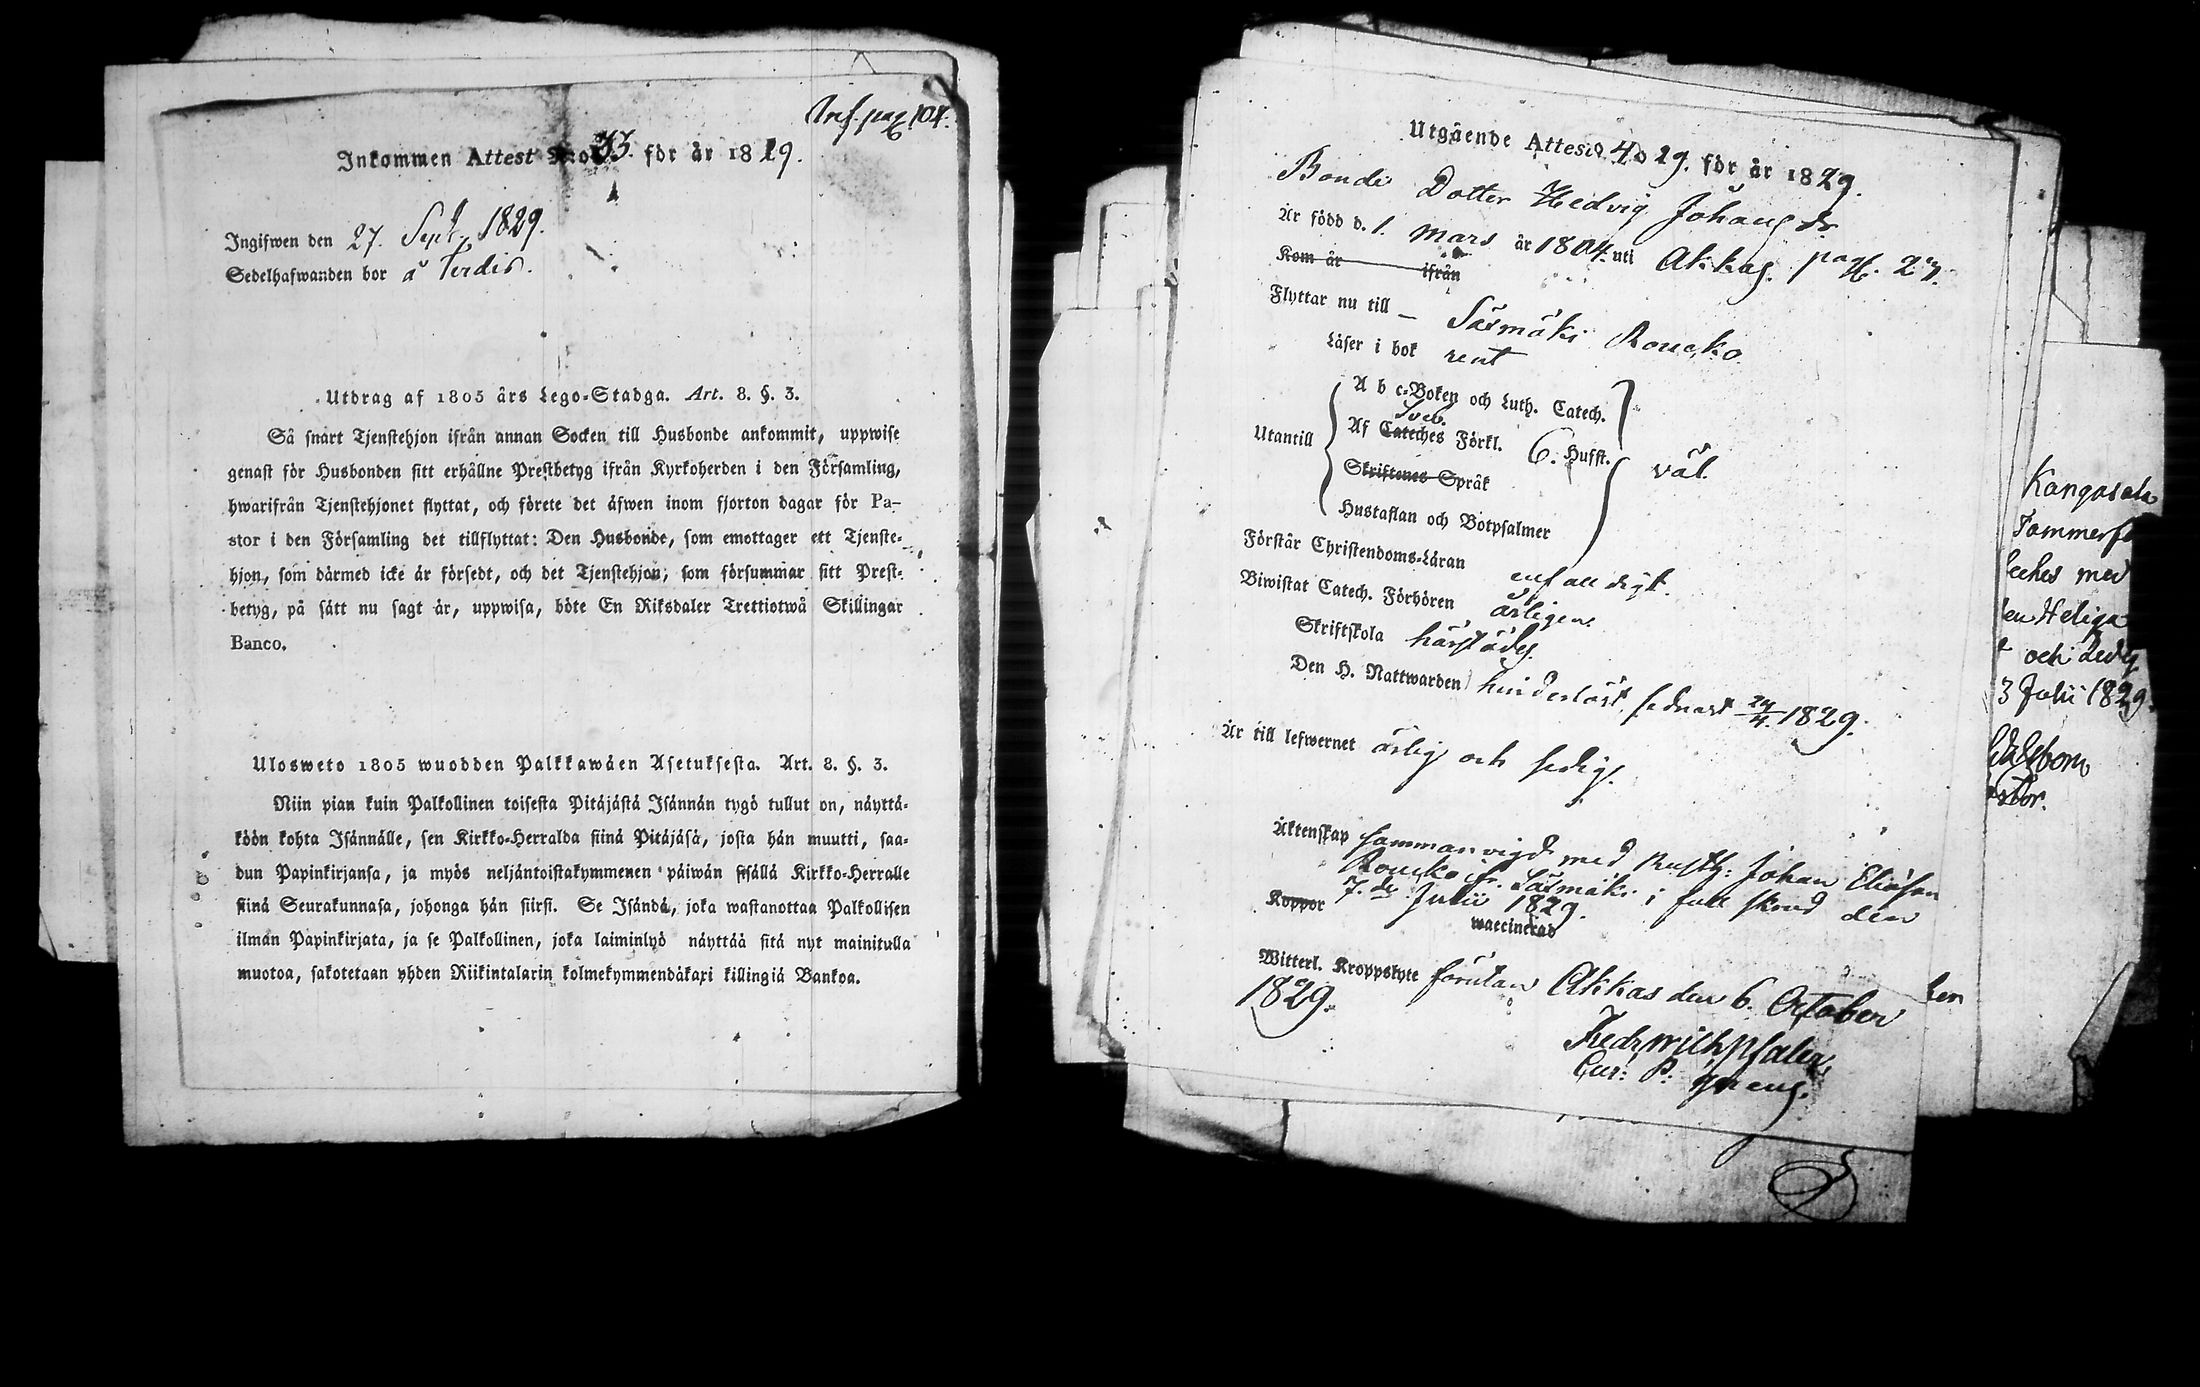 Inf. pag 104.
Inkommen Attest N:o 33. för år 1829.
Ingifwen den 27. Sept. 1829.
Sedelhafwanden bor å Terdis.
Utdrag af 1805 års Lego-Stadga. Art. 8. §. 3.
Så snart Tjenstehjon ifrån annan Socken till Husbonde ankommit, uppwise
genast för Husbonden sitt erhållne Prestbetyg ifrån Kyrkoherden i den Församling,
hwarifrån Tjenstehjonet flyttat, och förete det äfwen inom fjorton dagar för Pa-
stor i den Församling det tillflyttat: Den Husbonde, som emottager ett Tjenste-
hjon, som därmed icke är försedt, och det Tjenstehjon, som försummar sitt Prest-
betyg, på sätt nu sagt är, uppwisa, böte En Riksdaler Trettiotwå Skillingar
Banco.
Ulosweto 1805 wuodden Palkkawäen Asetuksesta. Art. 8. §. 3.
Niin pian kuin Palkollinen toisesta Pitäjästä Isännän tygö tullut on, näyttä-
köön kohta Isännälle, sen Kirkko-Herralda siinä Pitäjäsä, josta hän muutti, saa-
dun Papinkirjansa, ja myös neljäntoistakymmenen päiwän sisällä Kirkko-Herralle
siinä Seurakunnasa, johonga hän siirsi. Se Isändä, joka wastanottaa Palkollisen
ilman Papinkirjata, ja se Palkollinen, joka laiminlyö näyttää sitä nyt mainitulla
muotoa, sakotetaan yhden Riikintalarin kolmekymmendäkaxi killingiä Bankoa.
Utgående Attest 29. för år 1829.
Bonde Dotter Hedvig Johansdr
Är född d. 1. Mars år 1804. uti Akkas. pag. 27.
Kom år ifrån
Flyttar nu till Säsmäki Roucko.
Läser i bok rent
A b c-Boken och Luth. Catech.
Sveb.
Utantill Af Cateches Förkl. 6. Hufst. väl.
Skriftenes Språk
Hustaflan och Botpsalmer
Förstår Christendoms-Läran enfaldigt.
Biwistat Catech. Förhören årligen.
Skriftskola härstädes.
Den H. Nattwarden hinderlöst, sednast 24/4. 1829.
Är till lefwernet ärlig och sedig.
Äktenskap sammanvigd med Rusth: Johan Eliasson
Roucko fr. Säsmäki i full skrud den
7.de Julii 1829.
Koppor waccinerad
Witterl. Kroppslyte förutan Akkas den 6. October
1829.
Cur: P:
Kangasala
Tammerf
leches med
en Heliga
och dedig
3 Julii 1829.